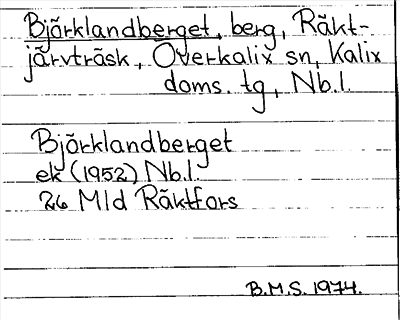 Björklandberget, berg, Räkt-
järvträsk, Överkalix sn, Kalix
doms. tg, Nb.l.
Björklandberget
ek (1952) Nb.l.
26 Mld Räktfors
B.M.S. 1974.